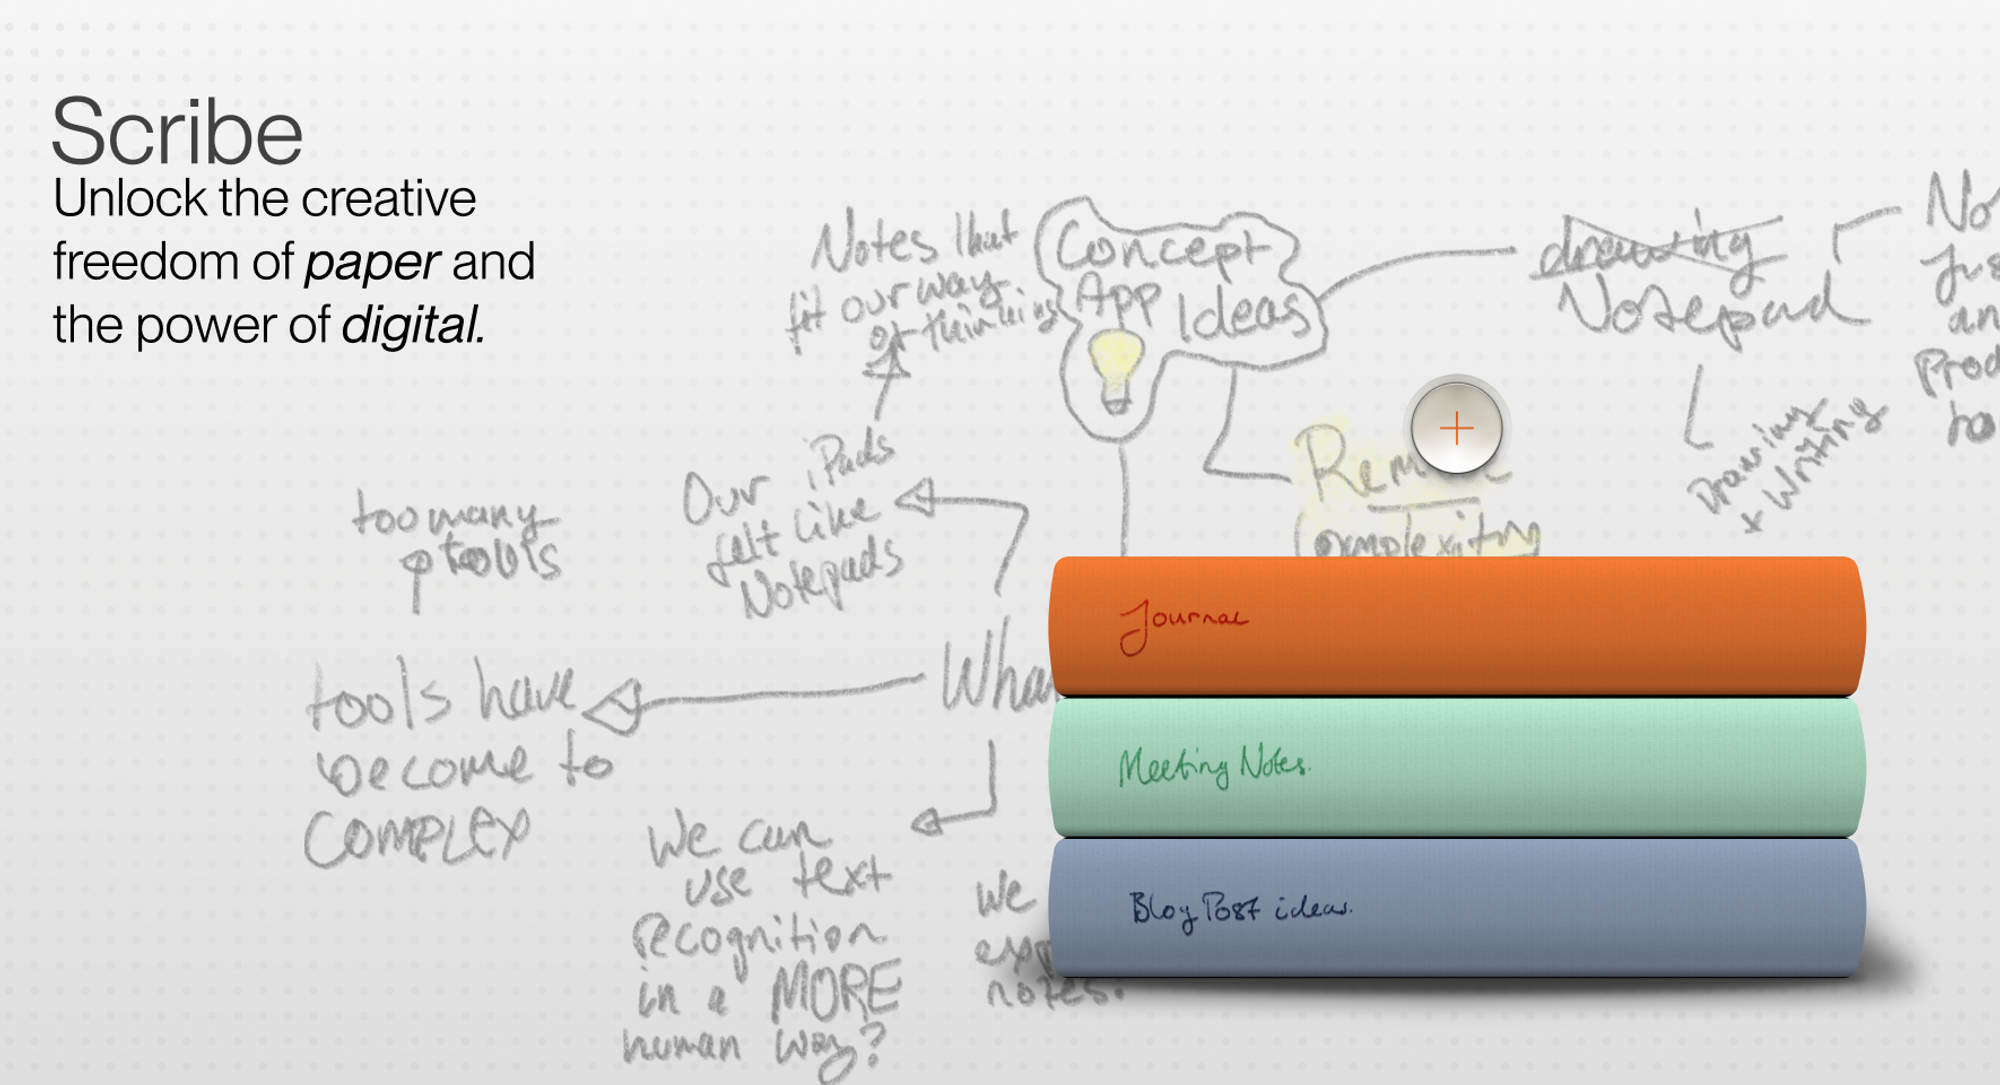 Scribe
Unlock the creative
freedom of paper and
the power of digital.
Notes that
fit our way
of thinking
Concept
App Ideas
drawing
Notepad
Drawing
+ Writing
Our iPads
felt like
Notepads
too many
tools
tools have
become to
COMPLEX
We can
use text
recognition
in a MORE
human way?
We
notes.
Journal
Meeting Notes.
Blog Post ideas.